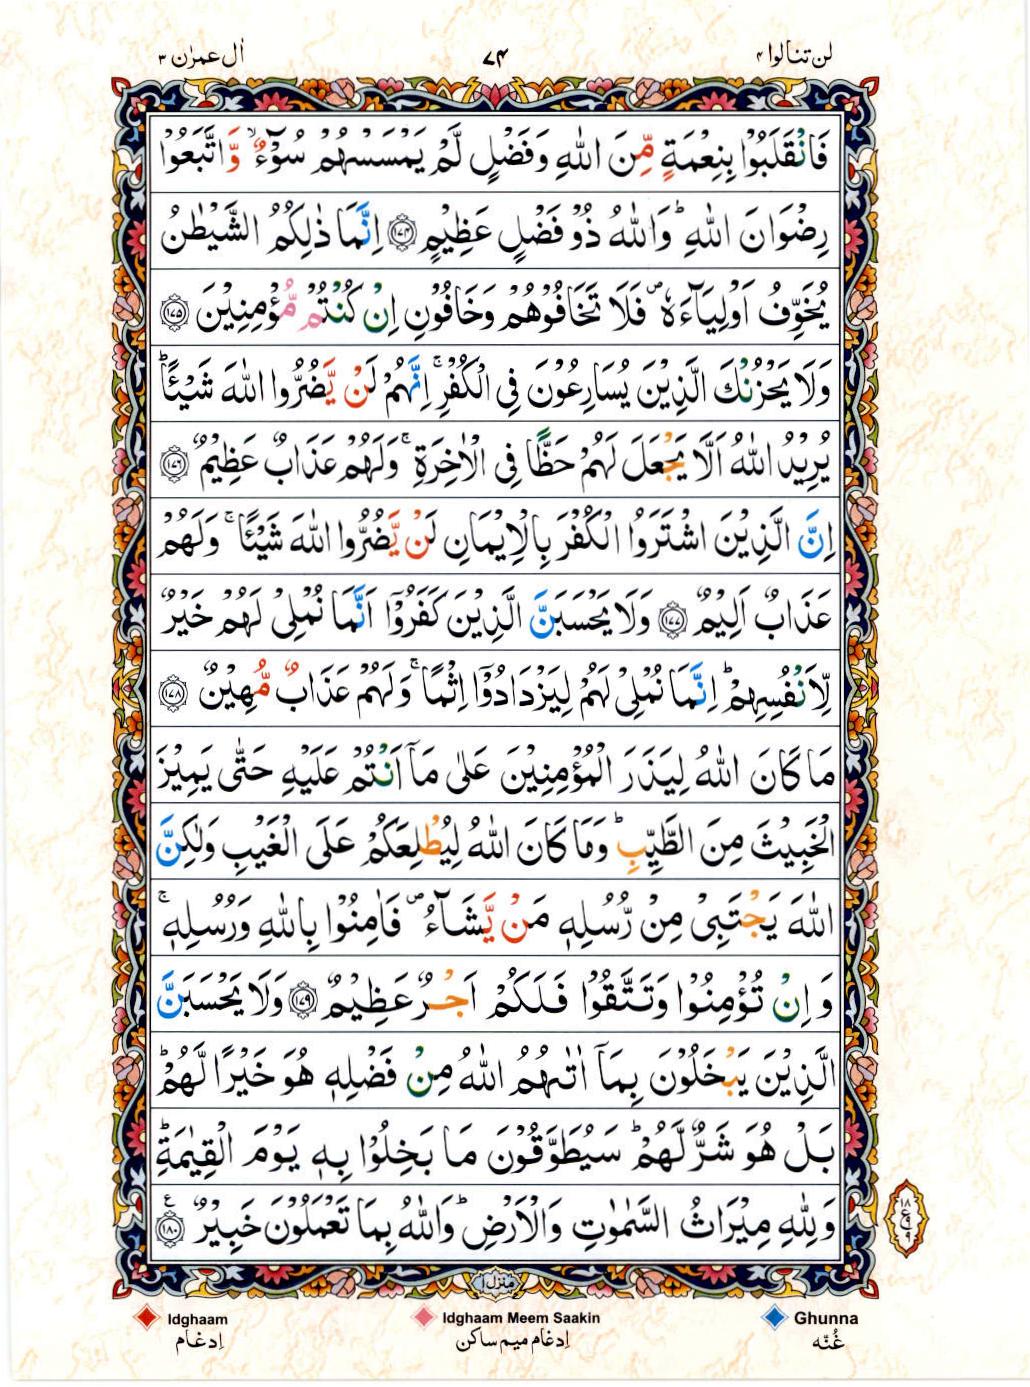 اٰل عمرٰن ٣
٧٤
لن تنالوا ٤
فَانْقَلَبُوْا بِنِعْمَةٍ مِّنَ اللّٰهِ وَفَضْلٍ لَّمْ يَمْسَسْهُمْ سُوْٓءٌ ۙ وَّاتَّبَعُوْا
رِضْوَانَ اللّٰهِ ؕ وَاللّٰهُ ذُوْ فَضْلٍ عَظِيْمٍ ﴿١٧٤﴾ اِنَّمَا ذٰلِكُمُ الشَّيْطٰنُ
يُخَوِّفُ اَوْلِيَآءَهٗ ۪ فَلَا تَخَافُوْهُمْ وَخَافُوْنِ اِنْ كُنْتُمْ مُّؤْمِنِيْنَ ﴿١٧٥﴾
وَلَا يَحْزُنْكَ الَّذِيْنَ يُسَارِعُوْنَ فِى الْكُفْرِ ۚ اِنَّهُمْ لَنْ يَّضُرُّوا اللّٰهَ شَيْـًٔا ؕ
يُرِيْدُ اللّٰهُ اَلَّا يَجْعَلَ لَهُمْ حَظًّا فِى الْاٰخِرَةِ ۚ وَلَهُمْ عَذَابٌ عَظِيْمٌ ﴿١٧٦﴾
اِنَّ الَّذِيْنَ اشْتَرَوُا الْكُفْرَ بِالْاِيْمَانِ لَنْ يَّضُرُّوا اللّٰهَ شَيْـًٔا ۚ وَلَهُمْ
عَذَابٌ اَلِيْمٌ ﴿١٧٧﴾ وَلَا يَحْسَبَنَّ الَّذِيْنَ كَفَرُوْٓا اَنَّمَا نُمْلِىْ لَهُمْ خَيْرٌ
لِّاَنْفُسِهِمْ ؕ اِنَّمَا نُمْلِىْ لَهُمْ لِيَزْدَادُوْٓا اِثْمًا ۚ وَلَهُمْ عَذَابٌ مُّهِيْنٌ ﴿١٧٨﴾
مَا كَانَ اللّٰهُ لِيَذَرَ الْمُؤْمِنِيْنَ عَلٰى مَآ اَنْتُمْ عَلَيْهِ حَتّٰى يَمِيْزَ
الْخَبِيْثَ مِنَ الطَّيِّبِ ؕ وَمَا كَانَ اللّٰهُ لِيُطْلِعَكُمْ عَلَى الْغَيْبِ وَلٰكِنَّ
اللّٰهَ يَجْتَبِىْ مِنْ رُّسُلِهٖ مَنْ يَّشَآءُ ۪ فَاٰمِنُوْا بِاللّٰهِ وَرُسُلِهٖ ۚ
وَاِنْ تُؤْمِنُوْا وَتَتَّقُوْا فَلَكُمْ اَجْرٌ عَظِيْمٌ ﴿١٧٩﴾ وَلَا يَحْسَبَنَّ
الَّذِيْنَ يَبْخَلُوْنَ بِمَآ اٰتٰىهُمُ اللّٰهُ مِنْ فَضْلِهٖ هُوَ خَيْرًا لَّهُمْ ؕ
بَلْ هُوَ شَرٌّ لَّهُمْ ؕ سَيُطَوَّقُوْنَ مَا بَخِلُوْا بِهٖ يَوْمَ الْقِيٰمَةِ ؕ
وَلِلّٰهِ مِيْرَاثُ السَّمٰوٰتِ وَالْاَرْضِ ؕ وَاللّٰهُ بِمَا تَعْمَلُوْنَ خَبِيْرٌ ﴿١٨٠﴾ ع
منزل ١
Idghaam
Idghaam Meem Saakin
Ghunna
اِدغام
اِدغام میم ساکن
غُنّه